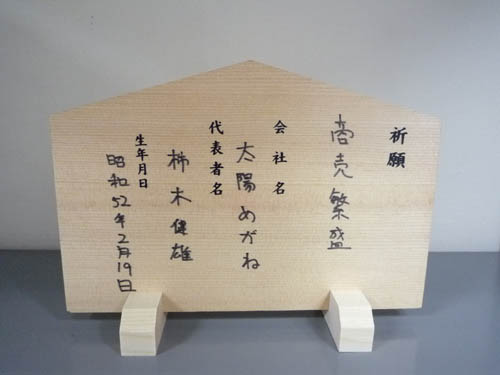 祈願
商売繁盛
会社名
太陽めがね
代表者名
柿木健雄
生年月日
昭和52年2月19日